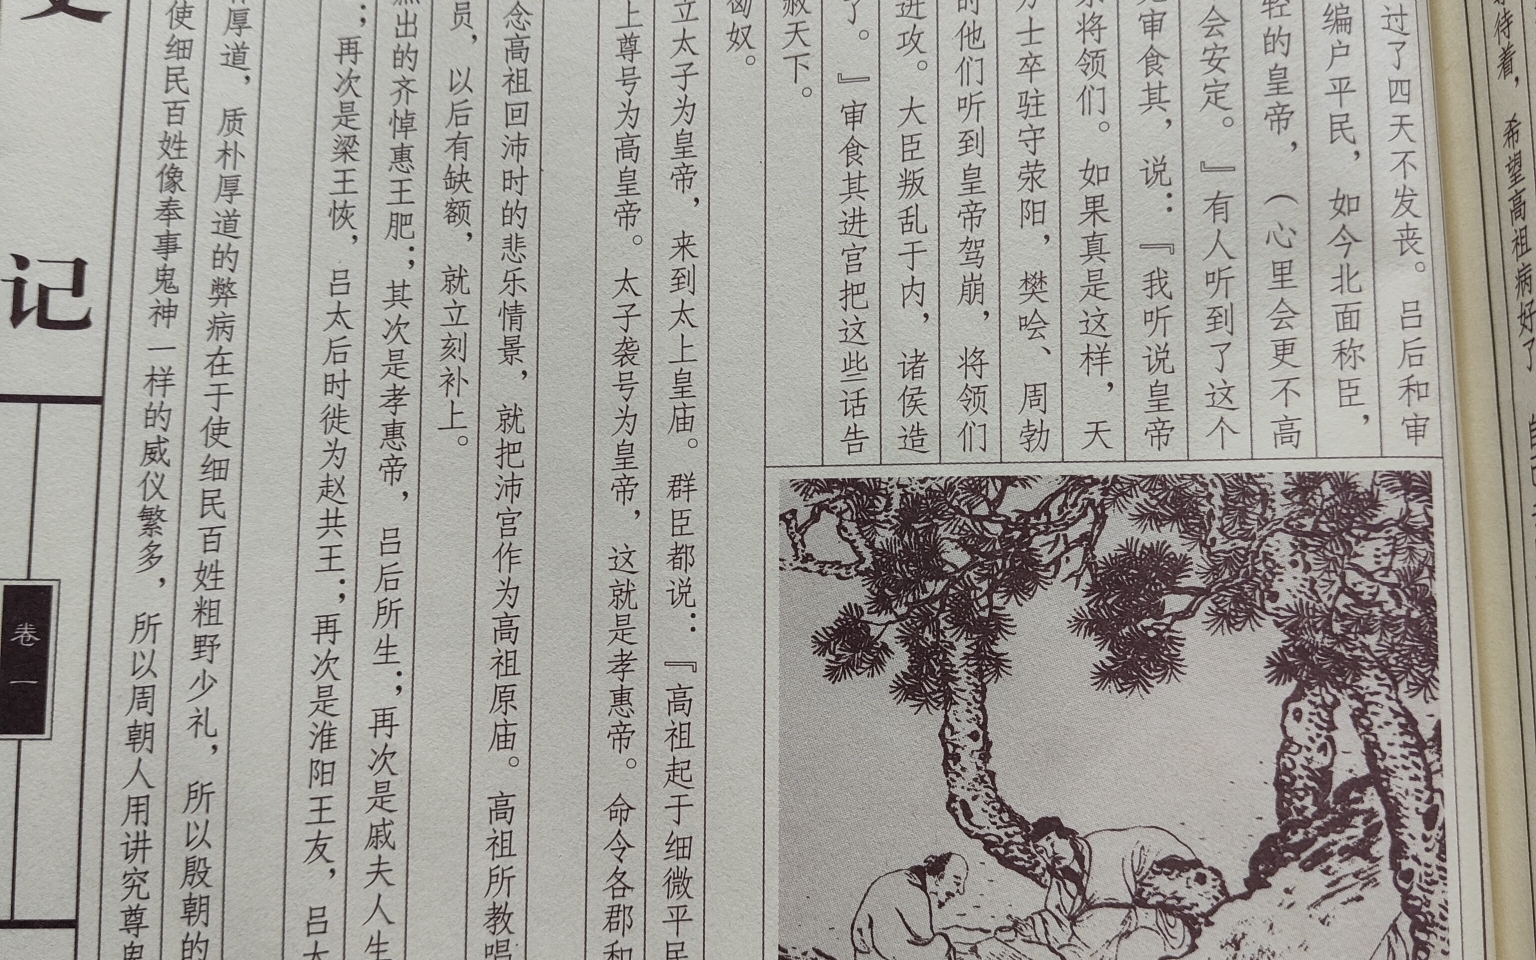 待着，希望高祖病好了
过了四天不发丧。吕后和审
编户平民，如今北面称臣，
轻的皇帝，（心里会更不高
会安定。』有人听到了这个
审食其，说：『我听说皇帝
将领们。如果真是这样，天
士卒驻守荥阳，樊哙、周勃
时他们听到皇帝驾崩，将领们
进攻。大臣叛乱于内，诸侯造
了。』审食其进宫把这些话告
赦天下。
匈奴。
立太子为皇帝，来到太上皇庙。群臣都说：『高祖起于细微平民
上尊号为高皇帝。太子袭号为皇帝，这就是孝惠帝。命令各郡和
念高祖回沛时的悲乐情景，就把沛宫作为高祖原庙。高祖所教唱
员，以后有缺额，就立刻补上。
出的齐悼惠王肥；其次是孝惠帝，吕后所生；再次是戚夫人生
；再次是梁王恢，吕太后时徙为赵共王；再次是淮阳王友，吕太
厚道，质朴厚道的弊病在于使细民百姓粗野少礼，所以殷朝的
使细民百姓像奉事鬼神一样的威仪繁多，所以周朝人用讲究尊卑
史记
卷一